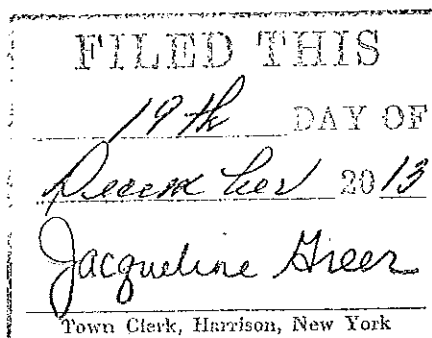 FILED THIS
19th DAY OF
December 2013
Jacqueline Greer
Town Clerk, Harrison, New York